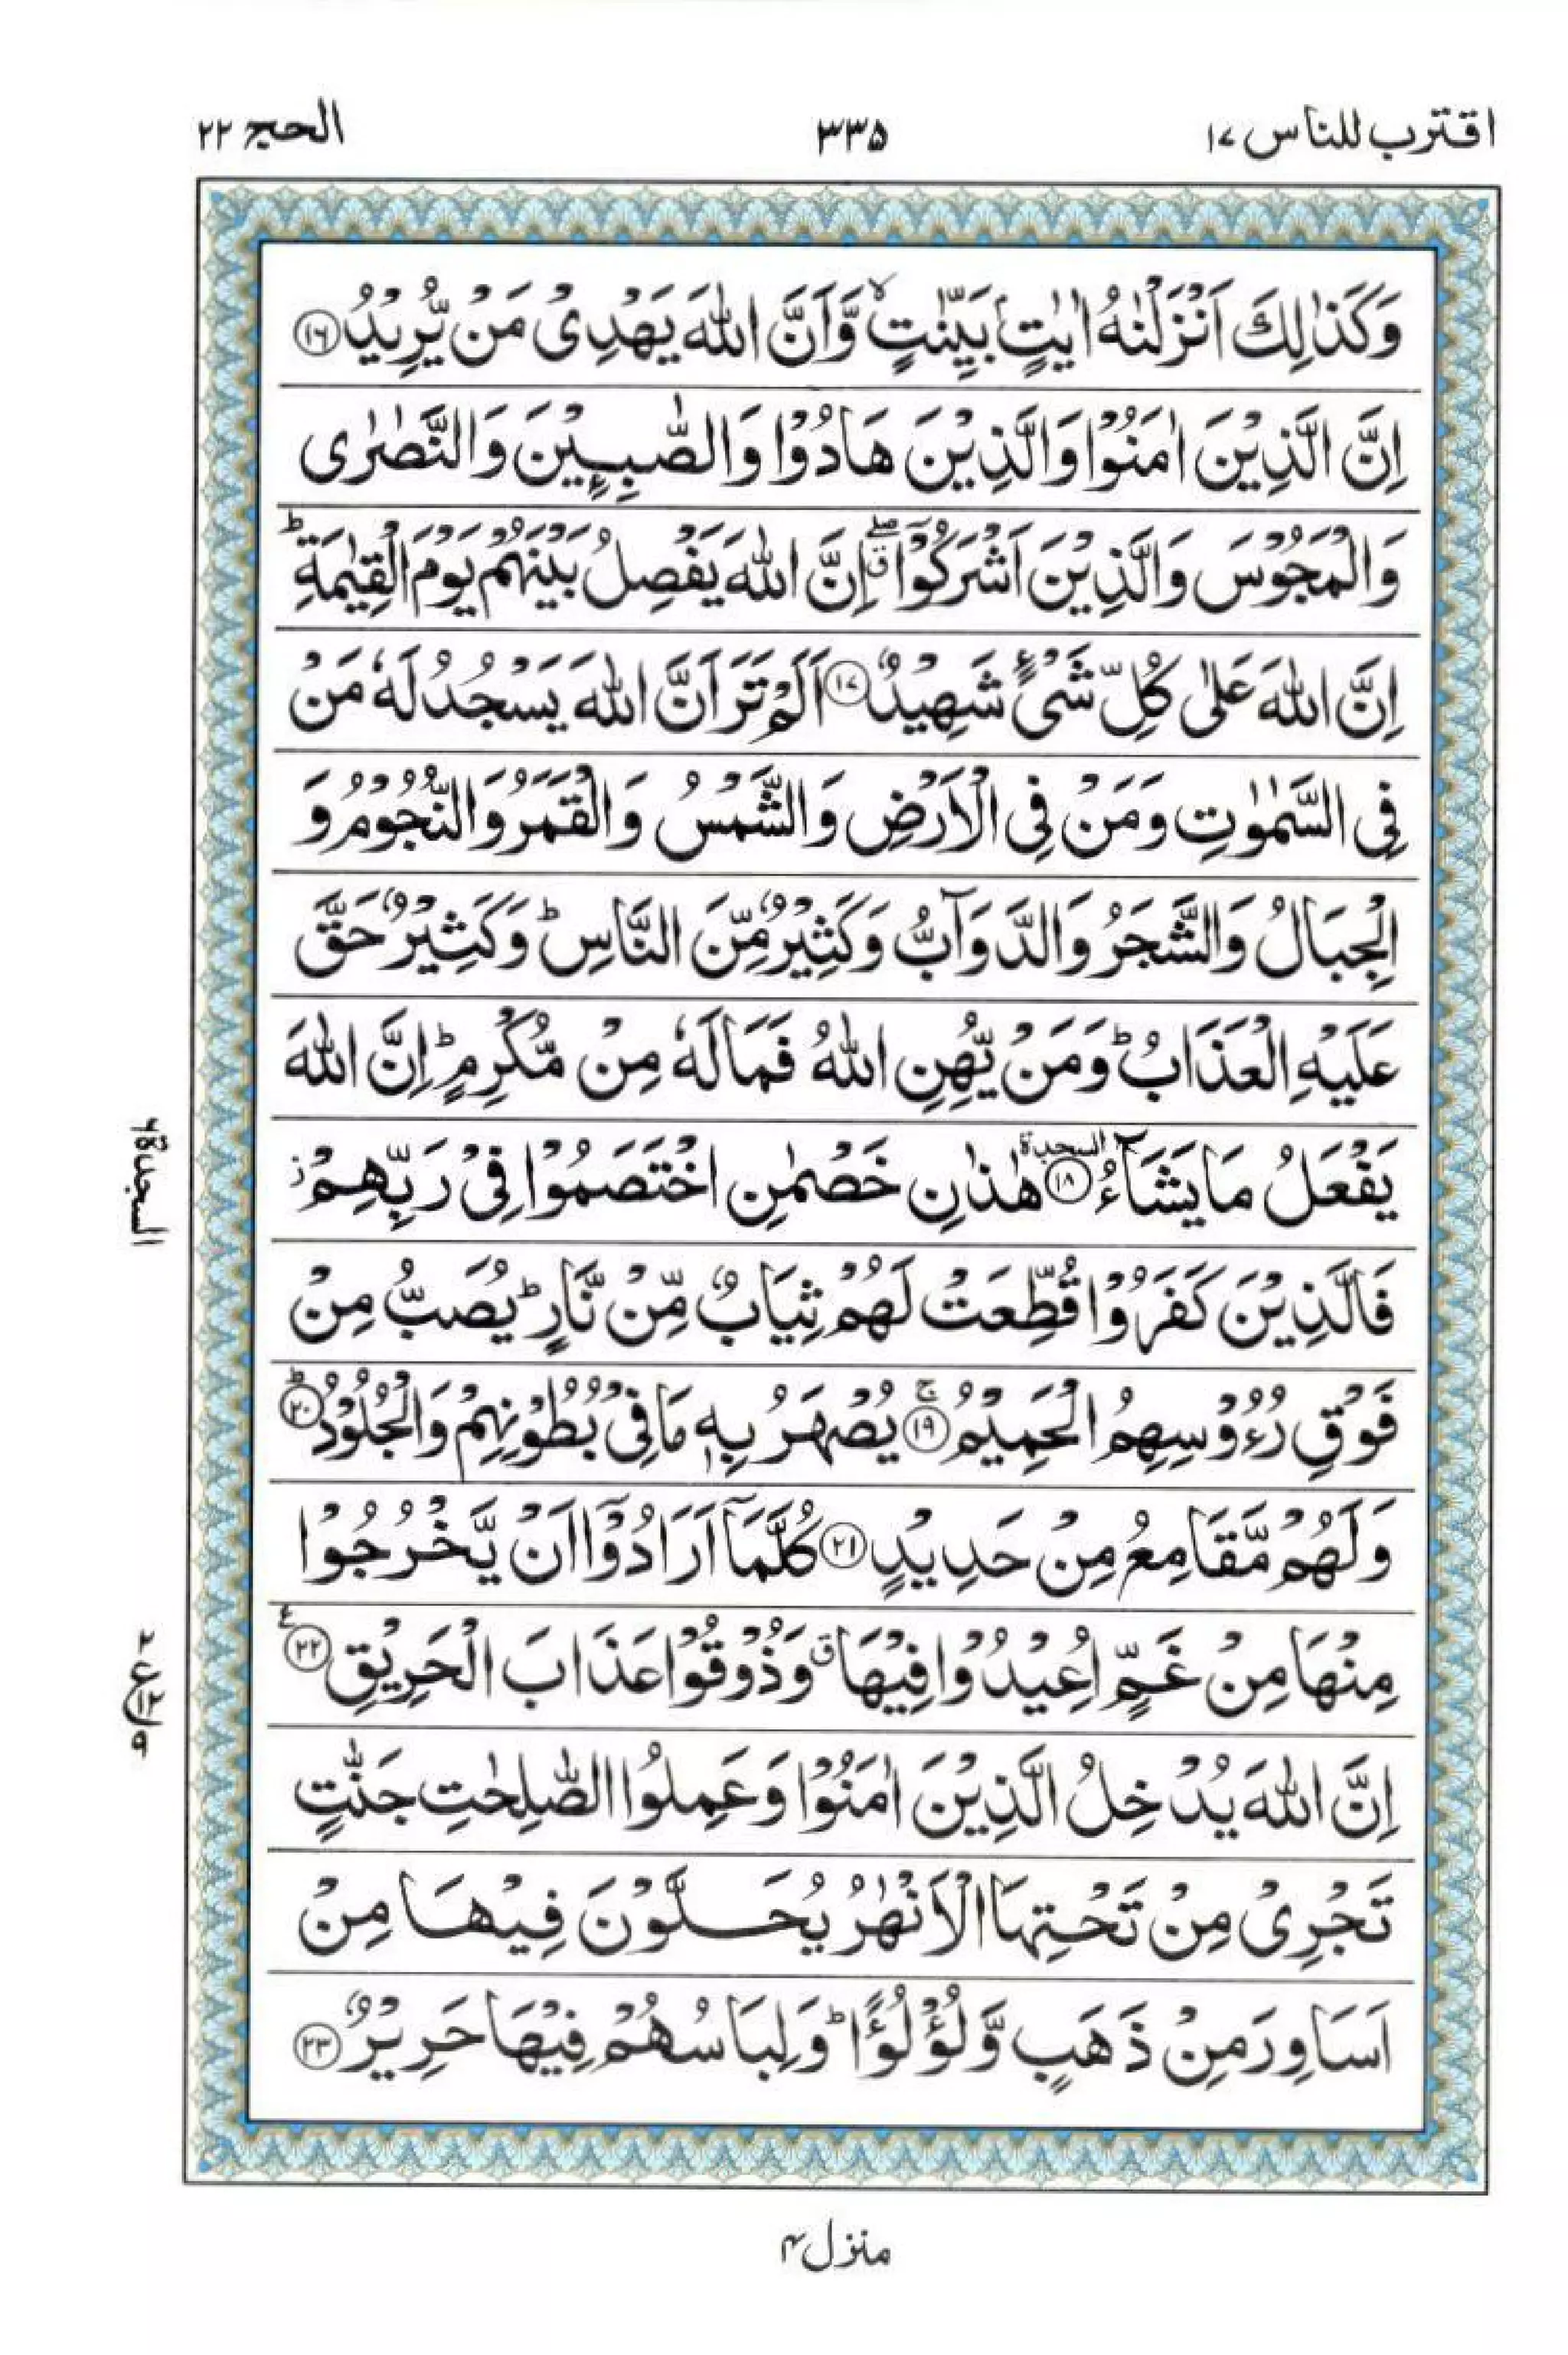 اقترب للناس ١٧
٣٣٥
الحج ٢٢
وَكَذٰلِكَ اَنْزَلْنٰهُ اٰيٰتٍۭ بَيِّنٰتٍ ۙ وَّاَنَّ اللّٰهَ يَهْدِيْ مَنْ يُّرِيْدُ ﴿١٦﴾
اِنَّ الَّذِيْنَ اٰمَنُوْا وَالَّذِيْنَ هَادُوْا وَالصّٰبِـِٕيْنَ وَالنَّصٰرٰى
وَالْمَجُوْسَ وَالَّذِيْنَ اَشْرَكُوْۤا ۖۗ اِنَّ اللّٰهَ يَفْصِلُ بَيْنَهُمْ يَوْمَ الْقِيٰمَةِ ؕ
اِنَّ اللّٰهَ عَلٰى كُلِّ شَيْءٍ شَهِيْدٌ ﴿١٧﴾ اَلَمْ تَرَ اَنَّ اللّٰهَ يَسْجُدُ لَهٗ مَنْ
فِي السَّمٰوٰتِ وَمَنْ فِي الْاَرْضِ وَالشَّمْسُ وَالْقَمَرُ وَالنُّجُوْمُ وَ
الْجِبَالُ وَالشَّجَرُ وَالدَّوَآبُّ وَكَثِيْرٌ مِّنَ النَّاسِ ؕ وَكَثِيْرٌ حَقَّ
عَلَيْهِ الْعَذَابُ ؕ وَمَنْ يُّهِنِ اللّٰهُ فَمَا لَهٗ مِنْ مُّكْرِمٍ ؕ اِنَّ اللّٰهَ
يَفْعَلُ مَا يَشَآءُ ﴿١٨﴾ السجدة هٰذٰنِ خَصْمٰنِ اخْتَصَمُوْا فِيْ رَبِّهِمْ ز
السجدة ٦
فَالَّذِيْنَ كَفَرُوْا قُطِّعَتْ لَهُمْ ثِيَابٌ مِّنْ نَّارٍ ؕ يُصَبُّ مِنْ
فَوْقِ رُءُوْسِهِمُ الْحَمِيْمُ ۚ ﴿١٩﴾ يُصْهَرُ بِهٖ مَا فِيْ بُطُوْنِهِمْ وَالْجُلُوْدُ ؕ ﴿٢٠﴾
وَلَهُمْ مَّقَامِعُ مِنْ حَدِيْدٍ ﴿٢١﴾ كُلَّمَاۤ اَرَادُوْۤا اَنْ يَّخْرُجُوْا
مِنْهَا مِنْ غَمٍّ اُعِيْدُوْا فِيْهَا ۗ وَذُوْقُوْا عَذَابَ الْحَرِيْقِ ﴿٢٢﴾ ع
اِنَّ اللّٰهَ يُدْخِلُ الَّذِيْنَ اٰمَنُوْا وَعَمِلُوا الصّٰلِحٰتِ جَنّٰتٍ
تَجْرِيْ مِنْ تَحْتِهَا الْاَنْهٰرُ يُحَلَّوْنَ فِيْهَا مِنْ
اَسَاوِرَ مِنْ ذَهَبٍ وَّلُؤْلُؤًا ؕ وَلِبَاسُهُمْ فِيْهَا حَرِيْرٌ ﴿٢٣﴾
منزل ٤